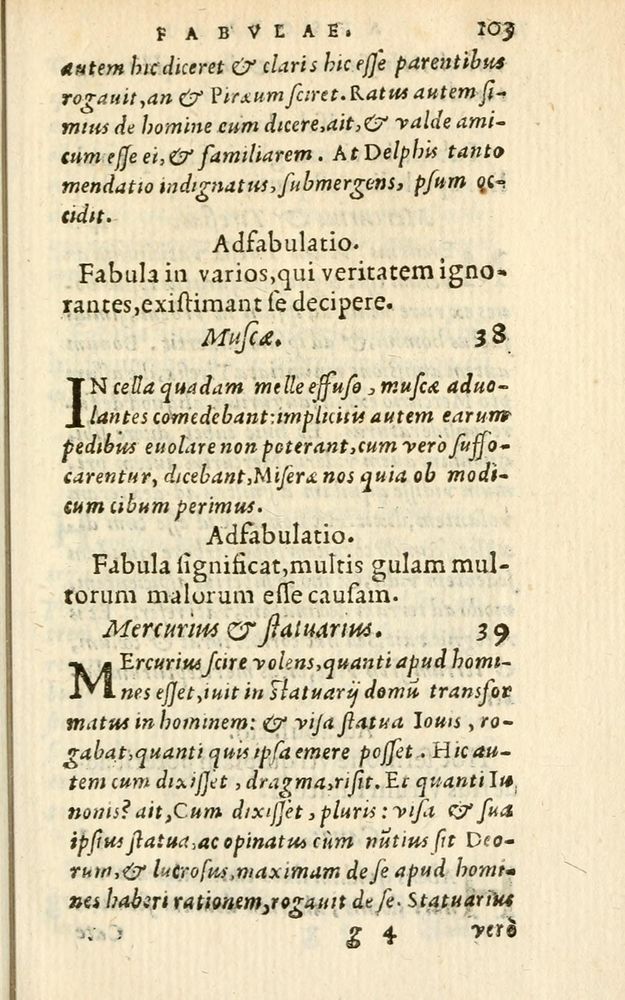 FABVLAE. 103
autem hic diceret & claris hic esse parentibus
rogauit, an & Piræum sciret. Ratus autem si-
mius de homine eum dicere, ait, & valde ami-
cum esse ei, & familiarem. At Delphis tanto
mendatio indignatus, submergens, psum oc-
cidit.
Adfabulatio.
Fabula in varios, qui veritatem igno-
rantes, existimant se decipere.
Muscæ. 38
IN cella quadam melle effuso, muscæ aduo-
lantes comedebant: implicitis autem earum
pedibus euolare non poterant, cum verò suffo-
carentur, dicebant, Miseræ nos quia ob modi-
cum cibum perimus.
Adfabulatio.
Fabula significat, multis gulam mul-
torum malorum esse causam.
Mercurius & statuarius. 39
MErcurius scire volens, quanti apud homi-
nes esset, iuit in statuarij domū transfor
matus in hominem: & visa statua Iouis, ro-
gabat, quanti quis ipsa emere posset. Hic au-
tem cum dixisset, dragma, risit. Et quanti Iu
nonis? ait, Cum dixisset, pluris: visa & sua
ipsius statua, ac opinatus cùm nūtius sit Deo-
rum, & lucrosus, maximam de se apud homi-
nes haberi rationem, rogauit de se. Statuarius
g 4 verò